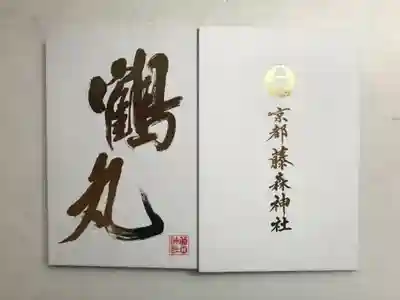 鶴丸
藤森神社
京都藤森神社